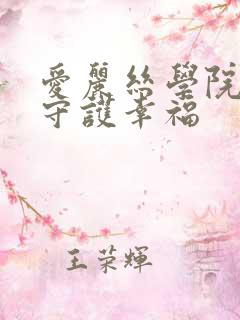 愛麗絲學院
守護幸福
王荣輝